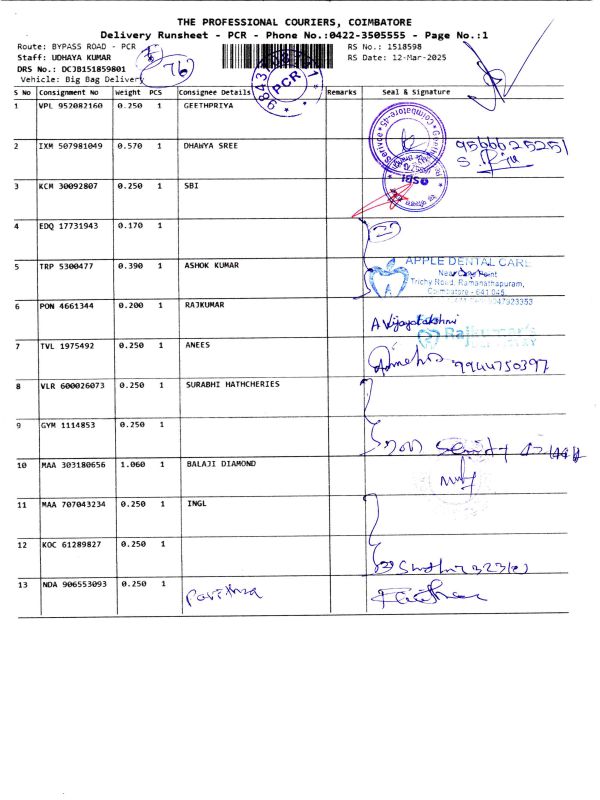 THE PROFESSIONAL COURIERS, COIMBATORE
Delivery Runsheet - PCR - Phone No.:0422-3505555 - Page No.:1
Route: BYPASS ROAD - PCR
RS No.: 1518598
Staff: UDHAYA KUMAR
RS Date: 12-Mar-2025
DRS No.: DCJB151859801
Vehicle: Big Bag Delivery
76
PCR
S No Consignment No Weight PCS Consignee Details Remarks Seal & Signature
1 VPL 952082160 0.250 1 GEETHPRIYA
2 IXM 507981049 0.570 1 DHAWYA SREE
9566625251
3 KCM 30092807 0.250 1 SBI
SBI
4 EDQ 17731943 0.170 1
5 TRP 5300477 0.390 1 ASHOK KUMAR
APPLE DENTAL CARE
Trichy Road, Ramanathapuram,
Coimbatore - 641 045
6 PON 4661344 0.200 1 RAJKUMAR
A Vijayalakshmi
Rajkumar's
7 TVL 1975492 0.250 1 ANEES
9944750397
8 VLR 600026073 0.250 1 SURABHI HATHCHERIES
9 GYM 1114853 0.250 1
10 MAA 303180656 1.060 1 BALAJI DIAMOND
11 MAA 707043234 0.250 1 INGL
12 KOC 61289827 0.250 1
13 NDA 906553093 0.250 1 Pavithra